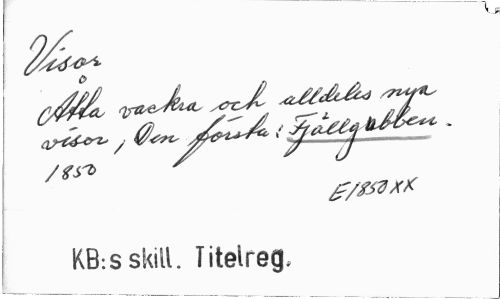 Visor
Åtta vackra och alldeles nya
visor, Den första: Fjällgubben.
1850
E1850XX
KB:s skill. Titelreg.